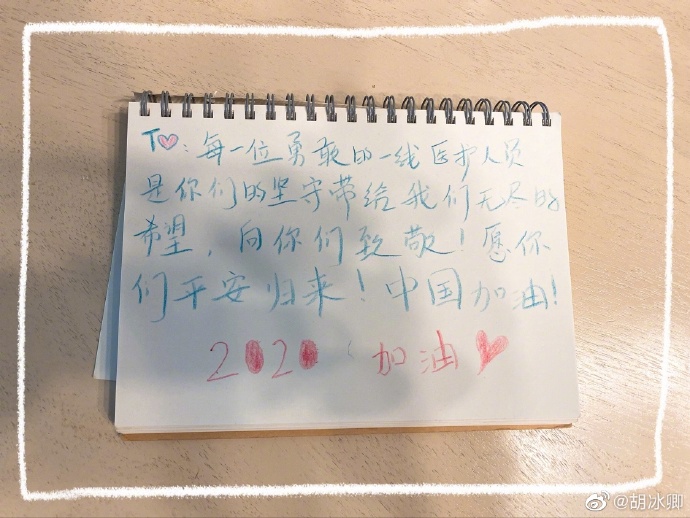 T♡：每一位勇敢的一线医护人员
是你们的坚守带给我们无尽的
希望，向你们致敬！愿你
们平安归来！中国加油！
2020 加油♥
@胡冰卿